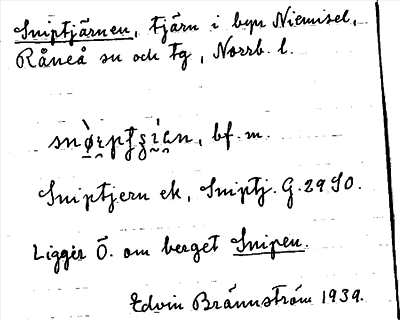 Sniptjärnen, tjärn i byn Niemisel,
Råneå sn och tg, Norrb. l.
bf. m.
Sniptjern ek, Sniptj. G. 29 SO.
Ligger Ö. om berget Snipen.
Edvin Brännström 1939.